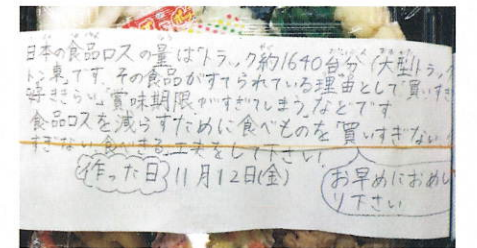 日本の食品ロスの量はトラック約1640台分(大型トラック
トン車)です。その食品がすてられている理由として「買いすぎ
好ききらい」「賞味期限がすぎてしまう」などです
食品ロスを減らすために食べものを「買いすぎない
すぎない食べきる」工夫をして下さい
作った日 11月12日(金)
お早めにおめし
り下さい